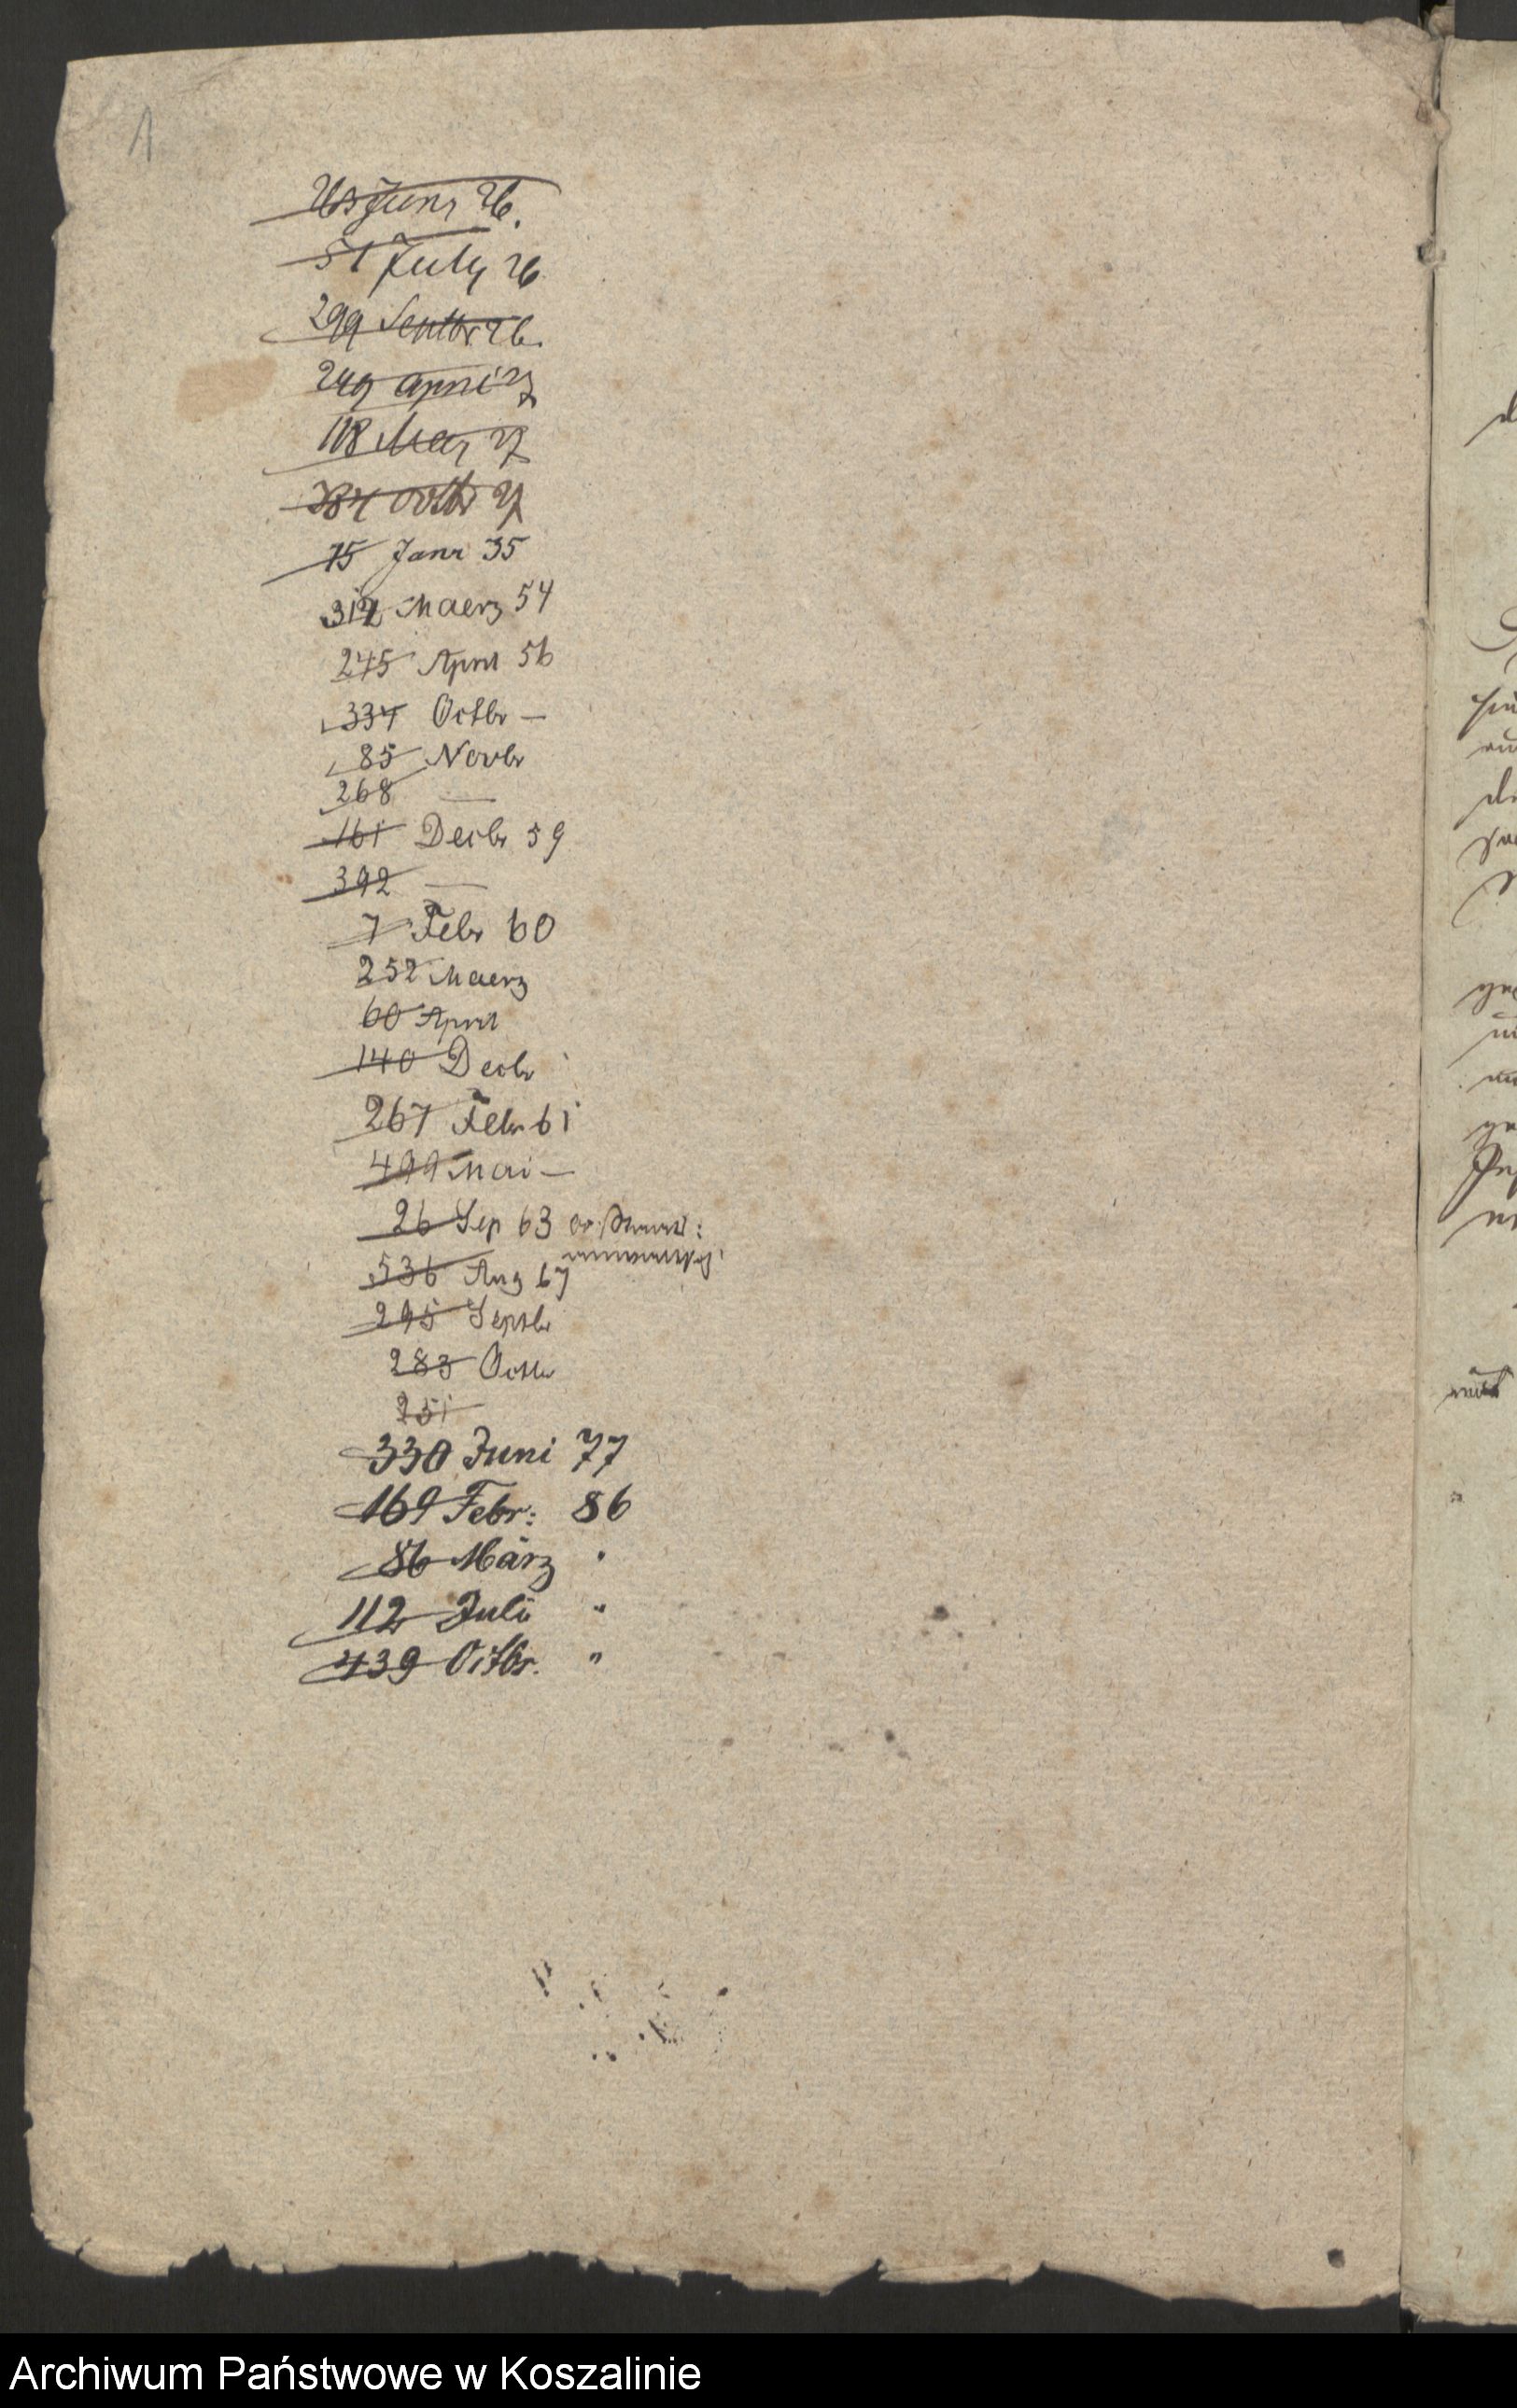 1
Juni 26.
51 July 26
299 Septbr 26.
249 April 27
118 May 27
384 Octbr 27
75 Janr 35
312 Maerz 54
245 April 56
334 Octbr —
85 Novbr
268 —
161 Decbr 59
392 —
7 Febr 60
252 Maerz
60 April
140 Decbr
267 Febr 61
499 Mai —
26 Sep 63
536 Aug 67
295 Septbr
283 Octbr
251
330 Juni 77
169 Febr: 86
86 März "
112 Juli "
439 Octbr. "
Archiwum Państwowe w Koszalinie